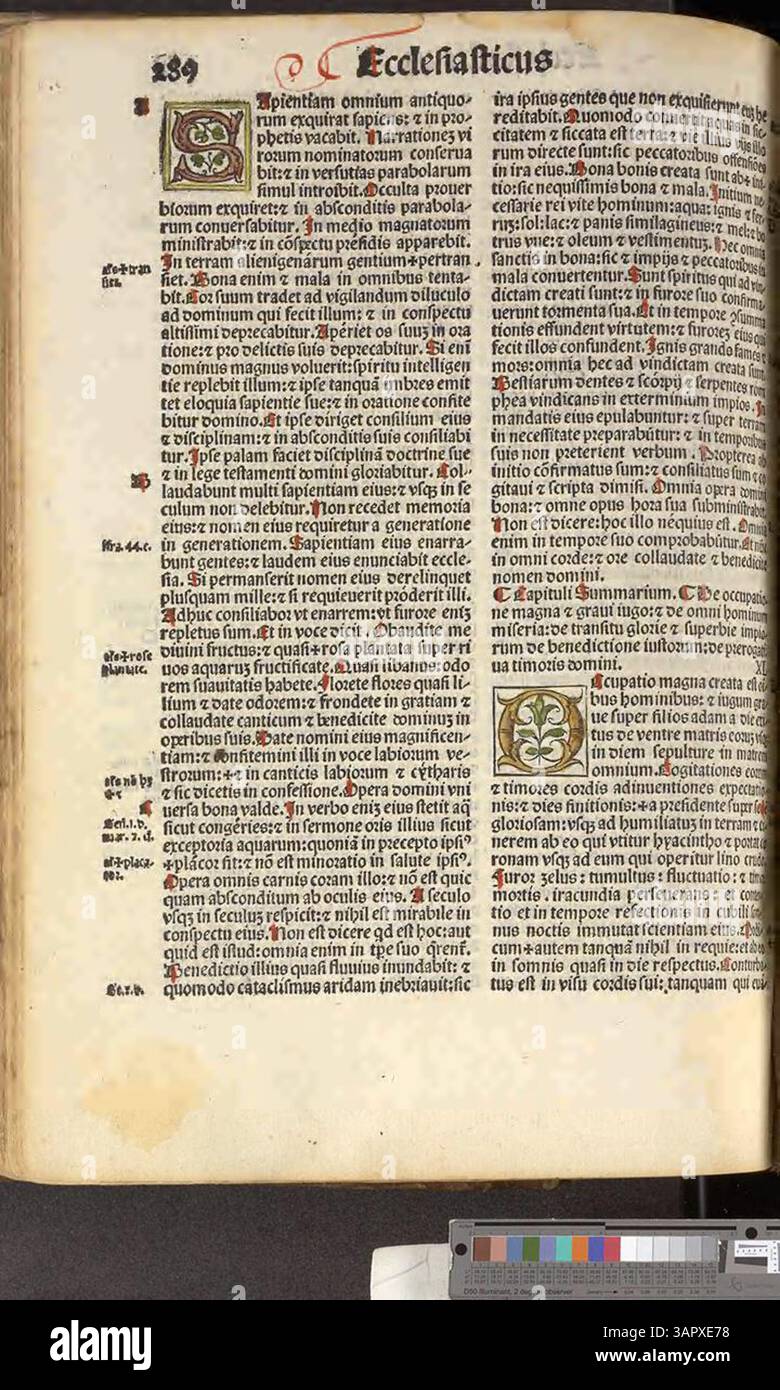 289
Ecclesiasticus
A
SApientiam omnium antiquo-
rum exquirat sapiens: ⁊ in pro-
phetis vacabit. Narrationez vi
rorum nominatorum conserua
bit: ⁊ in versutias parabolarum
simul introibit. Occulta prouer
biorum exquiret: ⁊ in absconditis parabola-
rum conuersabitur. In medio magnatorum
ministrabit: ⁊ in cōspectu presidis apparebit.
In terram alienigenārum gentium + pertran
siet. Bona enim ⁊ mala in omnibus tenta-
bit. Cor suum tradet ad vigilandum diluculo
ad dominum qui fecit illum: ⁊ in conspectu
altissimi deprecabitur. Apériet os suuz in ora
tione: ⁊ pro delictis suis deprecabitur. Si eni
dominus magnus voluerit: spiritu intelligen
tie replebit illum: ⁊ ipse tanquā imbres emit
tet eloquia sapientie sue: ⁊ in oratione confite
bitur domino. Et ipse diriget consilium eius
⁊ disciplinam: ⁊ in absconditis suis consiliabi
tur. Ipse palam faciet disciplinā doctrine sue
⁊ in lege testamenti domini gloriabitur. Col-
laudabunt multi sapientiam eius: ⁊ vsqz in se
culum non delebitur. Non recedet memoria
eius: ⁊ nomen eius requiretur a generatione
in generationem. Sapientiam eius enarra-
bunt gentes: ⁊ laudem eius enunciabit eccle-
sia. Si permanserit nomen eius derelinquet
plusquam mille: ⁊ si requieuerit próderit illi.
Adhuc consiliabor vt enarrem: vt furore eniz
repletus sum. Et in voce dicit. Obaudite me
diuini fructus: ⁊ quasi + rosa plantata super ri
uos aquaruz fructificate. Quasi libanus: odo
rem suauitatis habete. Florete flores quasi li-
lium ⁊ date odorem: ⁊ frondete in gratiam ⁊
collaudate canticum ⁊ benedicite dominuz in
operibus suis. Date nomini eius magnificen-
tiam: ⁊ confitemini illi in voce labiorum ve-
strorum: + ⁊ in canticis labiorum ⁊ cytharis
⁊ sic dicetis in confessione. Opera domini vni
uersa bona valde. In verbo eniz eius stetit aq̄
sicut congéries: ⁊ in sermone oris illius sicut
exceptoria aquarum: quoniā in precepto ipsiꝰ
+ plácor fit: ⁊ nō est minoratio in salute ipsiꝰ.
Opera omnis carnis coram illo: ⁊ nō est quic
quam absconditum ab oculis eius. A seculo
vsqz in seculuz respicit: ⁊ nihil est mirabile in
conspectu eius. Non est dicere qd est hoc: aut
quid est istud: omnia enim in tp̄e suo q̄rent̄.
Benedictio illius quasi fluuius inundabit: ⁊
quomodo cataclismus aridam inebriauit: sic
B
Infra. 44. c.
ira ipsius gentes que non exquisierunt euz he
reditabit. Quomodo conuertit aquas in sic-
citatem ⁊ siccata est terra: ⁊ vie illius vijs illo
rum directe sunt: sic peccatoribus offensiões
in ira eius. Bona bonis creata sunt ab + ini
tio: sic nequissimis bona ⁊ mala. Initium ne
cessarie rei vite hominum: aqua: ignis ⁊ fer-
ruz: sol: lac: ⁊ panis similagineus: ⁊ mel: ⁊ bo
trus vue: ⁊ oleum ⁊ vestimentuz. Hec omnia
sanctis in bona: sic ⁊ impijs ⁊ peccatoribus in
mala conuertentur. Sunt spiritus qui ad vin
dictam creati sunt: ⁊ in furore suo confirma-
uerunt tormenta sua. Et in tempore ꝯsumma
tionis effundent virtutem: ⁊ furorez eius qui
fecit illos confundent. Ignis grando fames ⁊
mors: omnia hec ad vindictam creata sunt.
Bestiarum dentes ⁊ scórpij ⁊ serpentes rom
phea vindicans in exterminium impios. In
mandatis eius epulabuntur: ⁊ super terram
in necessitate preparabūtur: ⁊ in temporibus
suis non preterient verbum. Propterea ab
initio cōfirmatus sum: ⁊ consiliatus sum ⁊ co
gitaui ⁊ scripta dimisi. Omnia opera domini
bona: ⁊ omne opus hora sua subministrabit.
Non est dicere: hoc illo néquius est. Omnia
enim in tempore suo comprobabūtur. Et nūc
in omni corde: ⁊ ore collaudate ⁊ benedicite
nomen domini.
¶ Capituli Summarium. ¶ De occupatio
ne magna ⁊ graui iugo: ⁊ de omni hominum
miseria: de transitu glorie ⁊ superbie impio-
rum de benedictione iustorum: de prerogati
ua timoris domini. XL
OCcupatio magna creata est oi
bus hominibus: ⁊ iugum gra
ue super filios adam a die exi
tus de ventre matris eoruz vsqz
in diem sepulture in matrem
omnium. Cogitationes eorum
⁊ timores cordis adinuentiones expectatio
nis: ⁊ dies finitionis: + a presidente super sede
gloriosam: vsqz ad humiliatuz in terram ⁊ ci
nerem ab eo qui vtitur hyacintho ⁊ portat co
ronam vsqz ad eum qui operitur lino crudo
Furor zelus: tumultus: fluctuatio: ⁊ timor
mortis. iracundia perseuerans: et conten
tio et in tempore refectionis in cubili som-
nus noctis immutat scientiam eius. Modi-
cum + autem tanquā nihil in requie: et ab eo
in somnis quasi in die respectus. Conturba-
tus est in visu cordis sui: tanquam qui eua-
D50 Illuminant, 2 degree observer
alamy
Image ID: 3APXE78
www.alamy.com